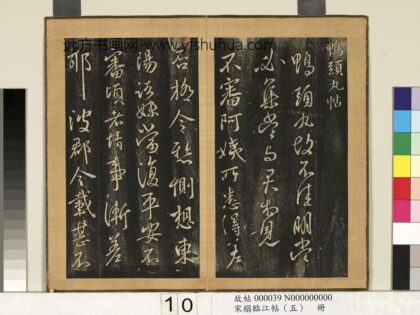 远方书画网-www.yfshuhua.com
鴨頭丸帖
鴨頭丸故不佳明當
必集當與君相見
不審阿姨所患得差
否極令懸惻想東
陽諸妹當復平安不
審頃者情事漸差
耶
郡今載甚不
10
故帖 000039 N000000000
宋榻臨江帖(五) 冊